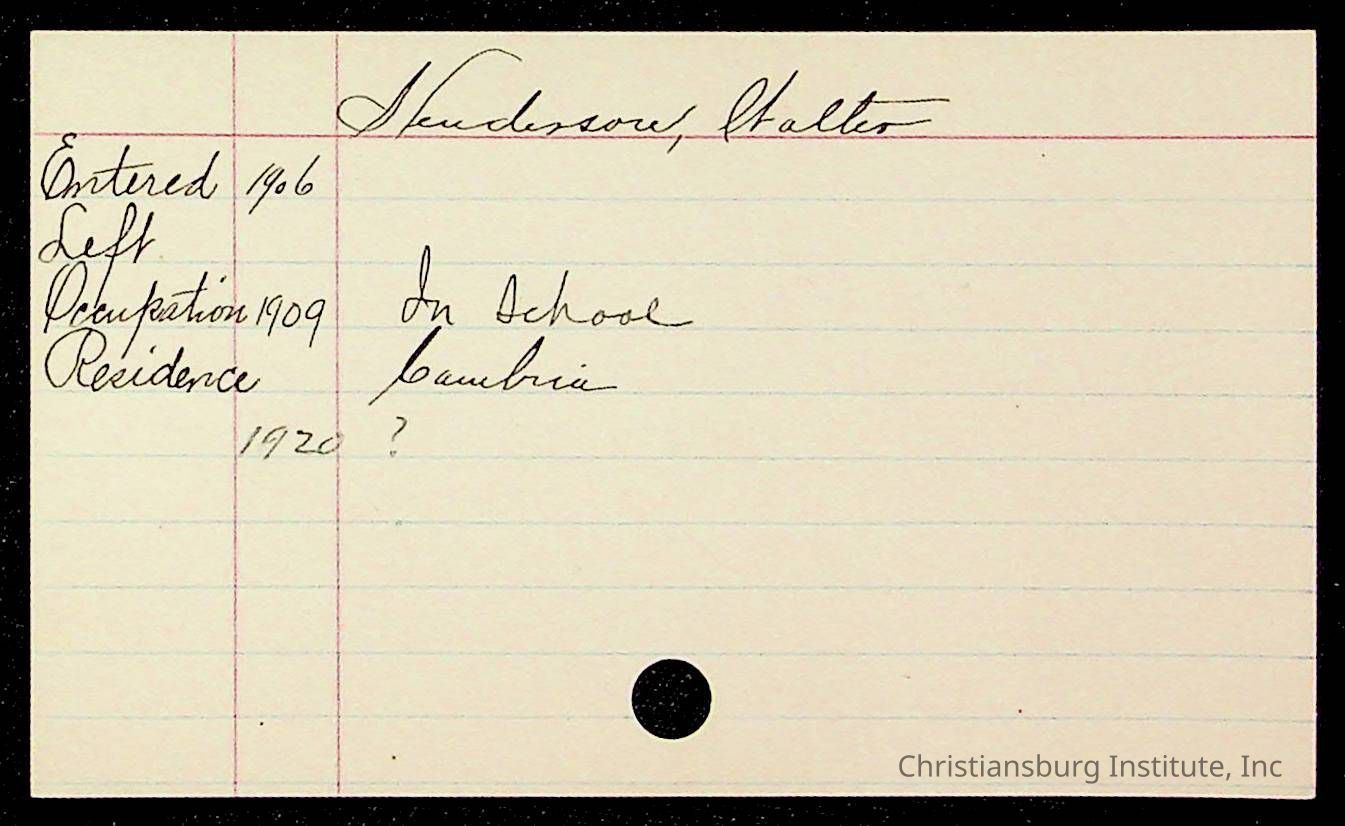 Henderson, Walter
Entered 1906
Left
Occupation 1909 In School
Residence Cambria
1920 ?
Christiansburg Institute, Inc